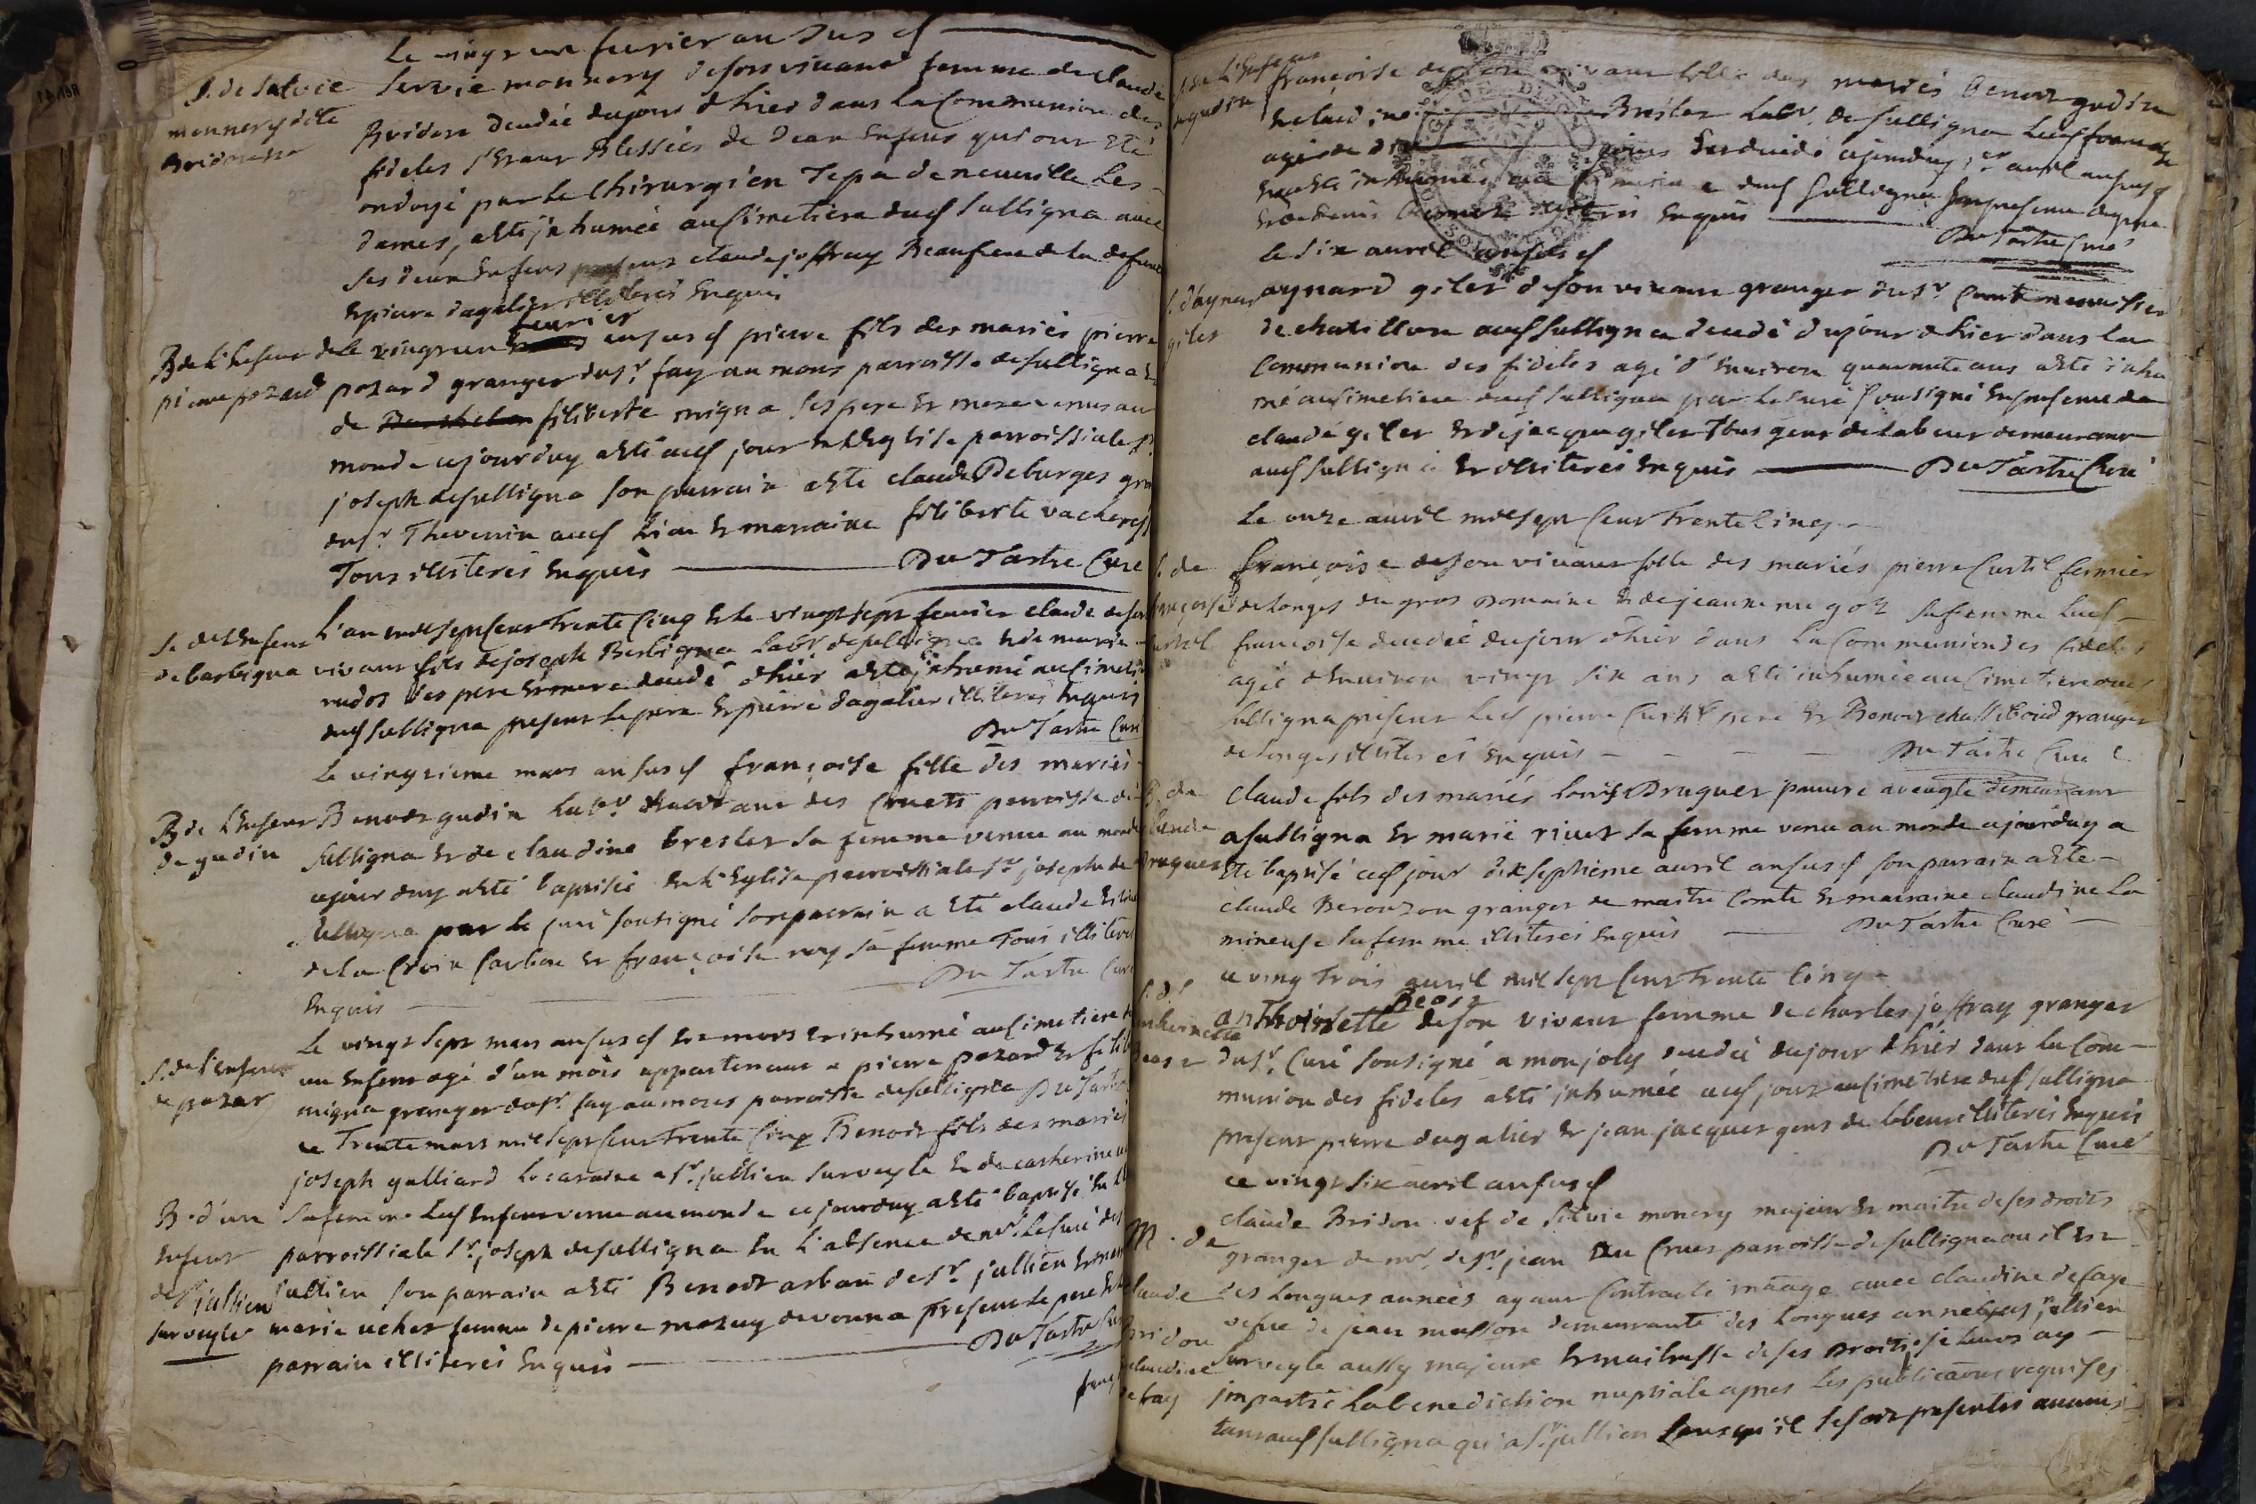 Le vingt un feurier an susd
S. de Silvie
monnery dite
Bridonne
Servie monnery de son vivant femme de claude
Bridon decedée du jour d hier dans la Communion des
fideles s'etant Blessiés de deux enfens qui ont eté
ondoyé par le Chirurgien Tepa de neuville les
dames, a esté inhumée au simetiere dud sulligna avec
ses deux enfens presens claude joffray Beaufrere de la defunte
et pierre dagalier illiterés enquis
B de l'enfent de
pierre pozard
le vingt un feurier an susd pierre fils des mariés pierre
pozard granger du sr. fay au mons parroisse de sulligna et
de filiberte migna ses pere et mere venus au
monde cejourduy a esté aud jour en l'Eglise parroissiale St.
joseph de sulligna son parrain a este claude Deburges gran
du sr. Thevenin aud lieu et marraine filiberte vacheresse
Tous illiterés enquis Du Tartre Curé
S. de l'Enfent
de berbigna
L'an mil sept cent trente cinq et le vingt sept feurier claude de son
vivant fils de joseph Berbigna labr. de sulligna et de marie
rudos ses pere et mere decedé d'hier a esté inhumé au simetiere
dud sulligna present le pere et pierre dagalier illiterés enquis
Du Tartre Curé
Le vingtieme mars an susd françoise fille des mariés
B de l'Enfent
de gudin
Benoit gudin labr. habitant des Cruets parroisse de
sulligna et de claudine breslet sa femme venue au monde
cejourduy a esté baptisée en l'Eglise parroissiale St. joseph de
sulligna par le curé sousigné son parrain a eté claude
de la Croix Carbon et françoise rey sa femme Tous illiterés
Enquis Du Tartre Curé
S. de l'Enfent
de pozar
Le vingt sept mars an susd est mort et inhumé au simetiere
un enfent agé d'un mois appartenant a pierre pozard et filiberte
migna granger du sr. fay au mons parroisse de sulligna Du Tartre
B. d'un
enfent
de St jullien
sur veyle
ce Trente mars mil sept cent trente cinq Benoit fils des mariés
joseph galliard locataire a St. jullien sur veyle et de catherine
sa femme led enfent venu au monde cejourduy a esté baptisé en l'Eglise
parroissiale St. joseph de sulligna en l'absence de mr. le curé de St
jullien son parrain a esté Benoit arban de St. jullien et marraine
marie ucher femme de pierre mazuy de vonna present le pere et le
parrain illiterés enquis Du Tartre Curé
fran
S. de l'Enfent
de gudin
françoise de son vivant fille des mariés Benoit gudin
et claudine Breslet labr. de sulligna lad francoise
agée de jours est decedée cejourduy 1er avril an susd
et a esté inhumée au simetiere dud sulligna en presence du pere
et de denis illiterés enquis
Du Tartre Curé
le six avril an susd
S. d'aynard
gilet
aynard gilet de son vivant granger du sr.
de chatillon aud sulligna decedé du jour d hier dans la
Communion des fideles agé d'environ quarante ans a esté inhu
mé au simetiere dud sulligna par le curé sousigné en presence de
claude gilet et de jacque gilet Tous gens de labeur demeurant
aud sulligna et illiterés enquis Du Tartre Curé
Le onze avril mil sept cent trente cinq
S. de
françoise
curtil
françoise de son vivant fille des mariés pierre Curtil fermier
de longes du gros domaine et de jeanne nugoz sa femme lad
francoise decedée du jour d'hier dans la Communion des fideles
agée d'environ vingt six ans a esté inhumée au simetiere dud
sulligna present led pierre Curtil pere et Benoit chassiboud granger
de longes illiterés enquis Du Tartre Curé
B. de
claude
Druguet
claude fils des mariés louis Druguet pauvre aveugle demeurant
a sulligna et marie rivet sa femme venu au monde cejourduy a
eté baptisé aud jour dix septieme avril an susd son parrain a este
claude Berouzon granger de maitre Comte et marraine claudine la
mineuse sa femme illiterés enquis Du Tartre Curé
ce vingt trois avril mil sept cent trente cinq
S. d'
anthoinette
Beost
anthoinette Beost de son vivant femme de charles joffray granger
du sr. Curé sousigné a monjoly decedée du jour d hier dans la Com
munion des fideles a esté inhumée aud jour au simetiere dud sulligna
present pierre dagalier et jean jacques gens de labeur illiterés enquis
Du Tartre Curé
ce vingt six avril an susd
M. de
claude
Bridon
et claudine
defay
claude Bridon vef de Silvie monery majeur et maitre de ses droits
granger de mr. de St. jean du Cruet parroisse de sulligna ou il est
des longues années ayant contracté mariage avec claudine defaye
vefve de jean masson demeurante des longues années a St jullien
sur veyle aussy majeure et maitresse de ses droits je leurs ay
imparti la benediction nuptiale apres les publications requises
tant aud sulligna qu'a St jullien sans qu'il se soit presentés aucuns